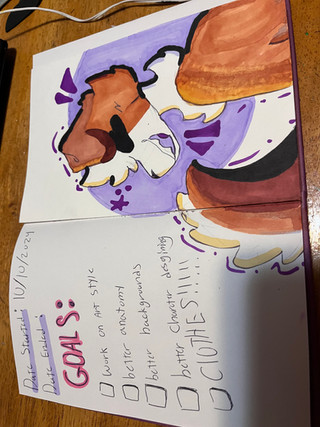 Date Started: 10/10/2024
Date Ended:
GOALS:
work on Art style
better anatomy
better backgrounds
better charctor desgining
ClOTHES!!!!!